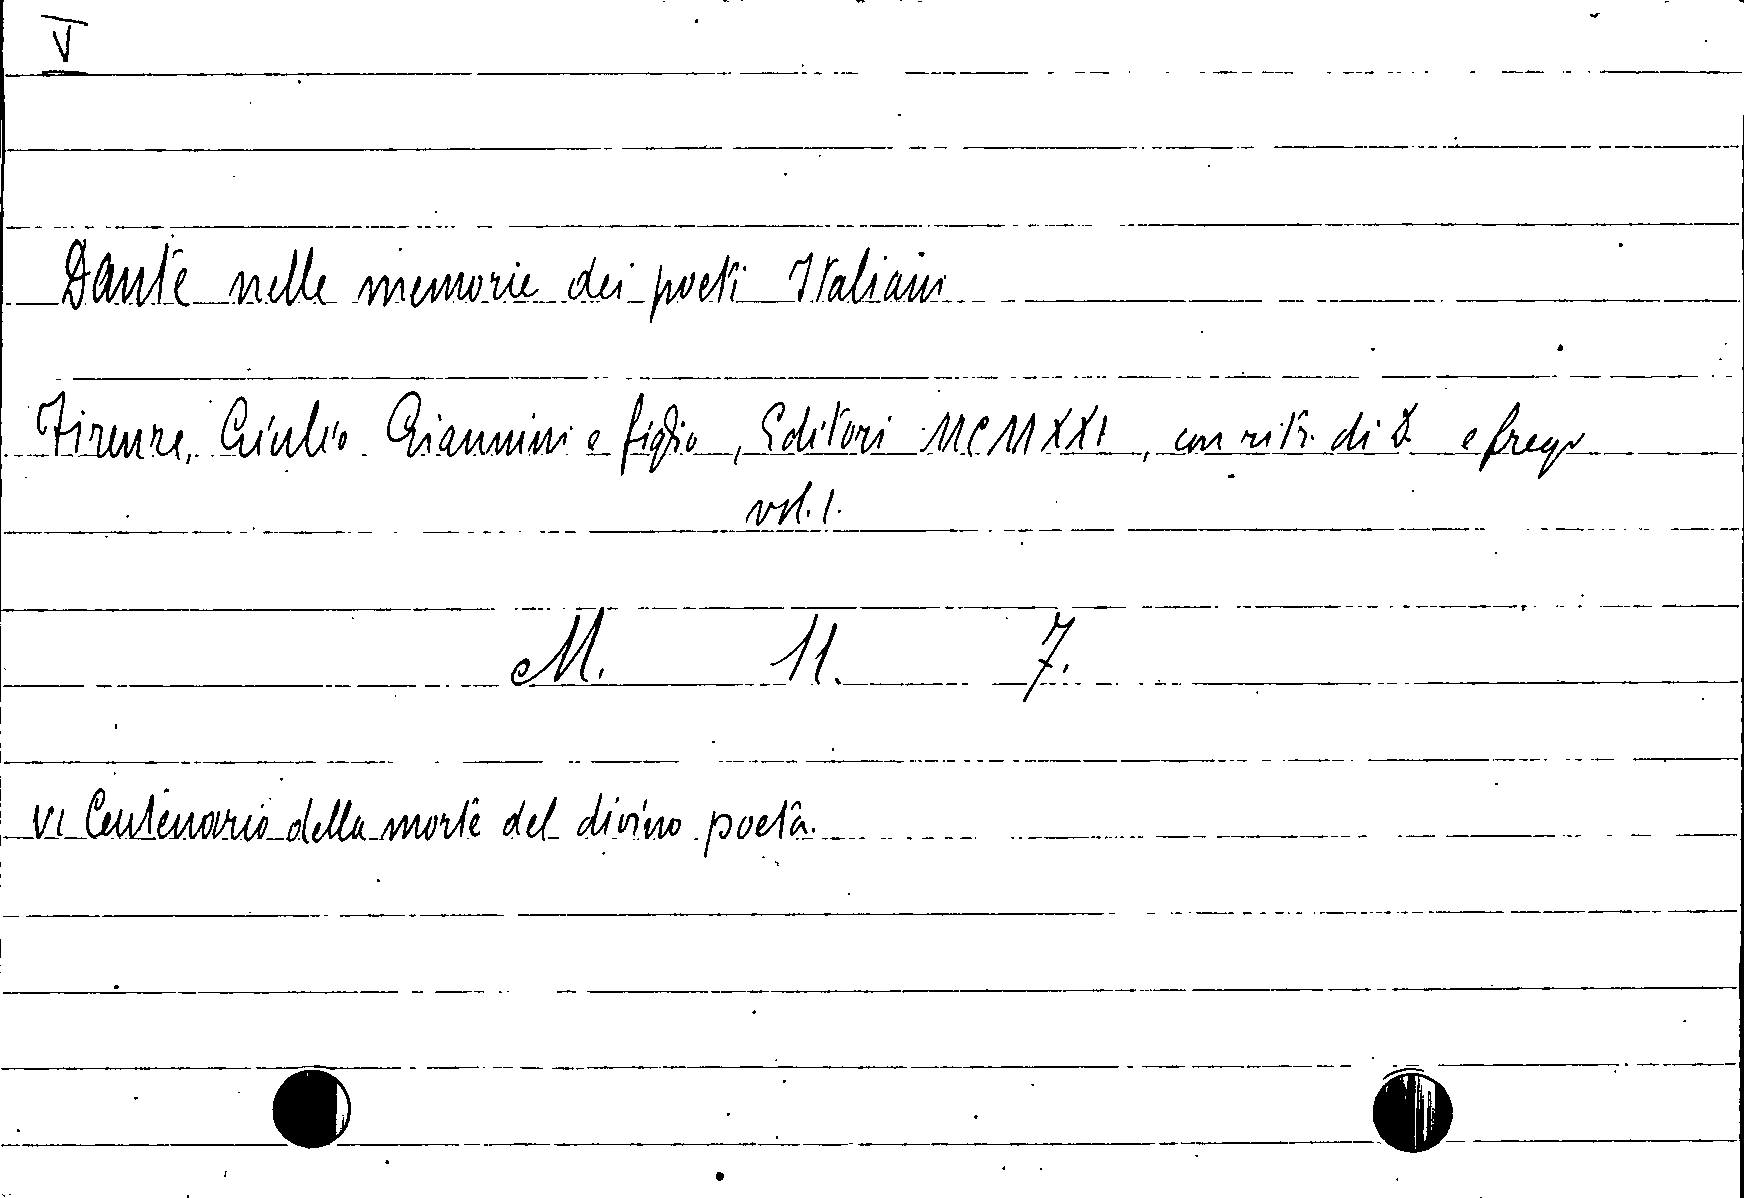 V
Dante nelle memorie dei poeti Italiani
Firenze, Giulio Giannini e figlio, Editori MCMXXI, con ritr. di D. e fregi
vol. 1.
M. 11. 7.
VI Centenario della morte del divino poeta.